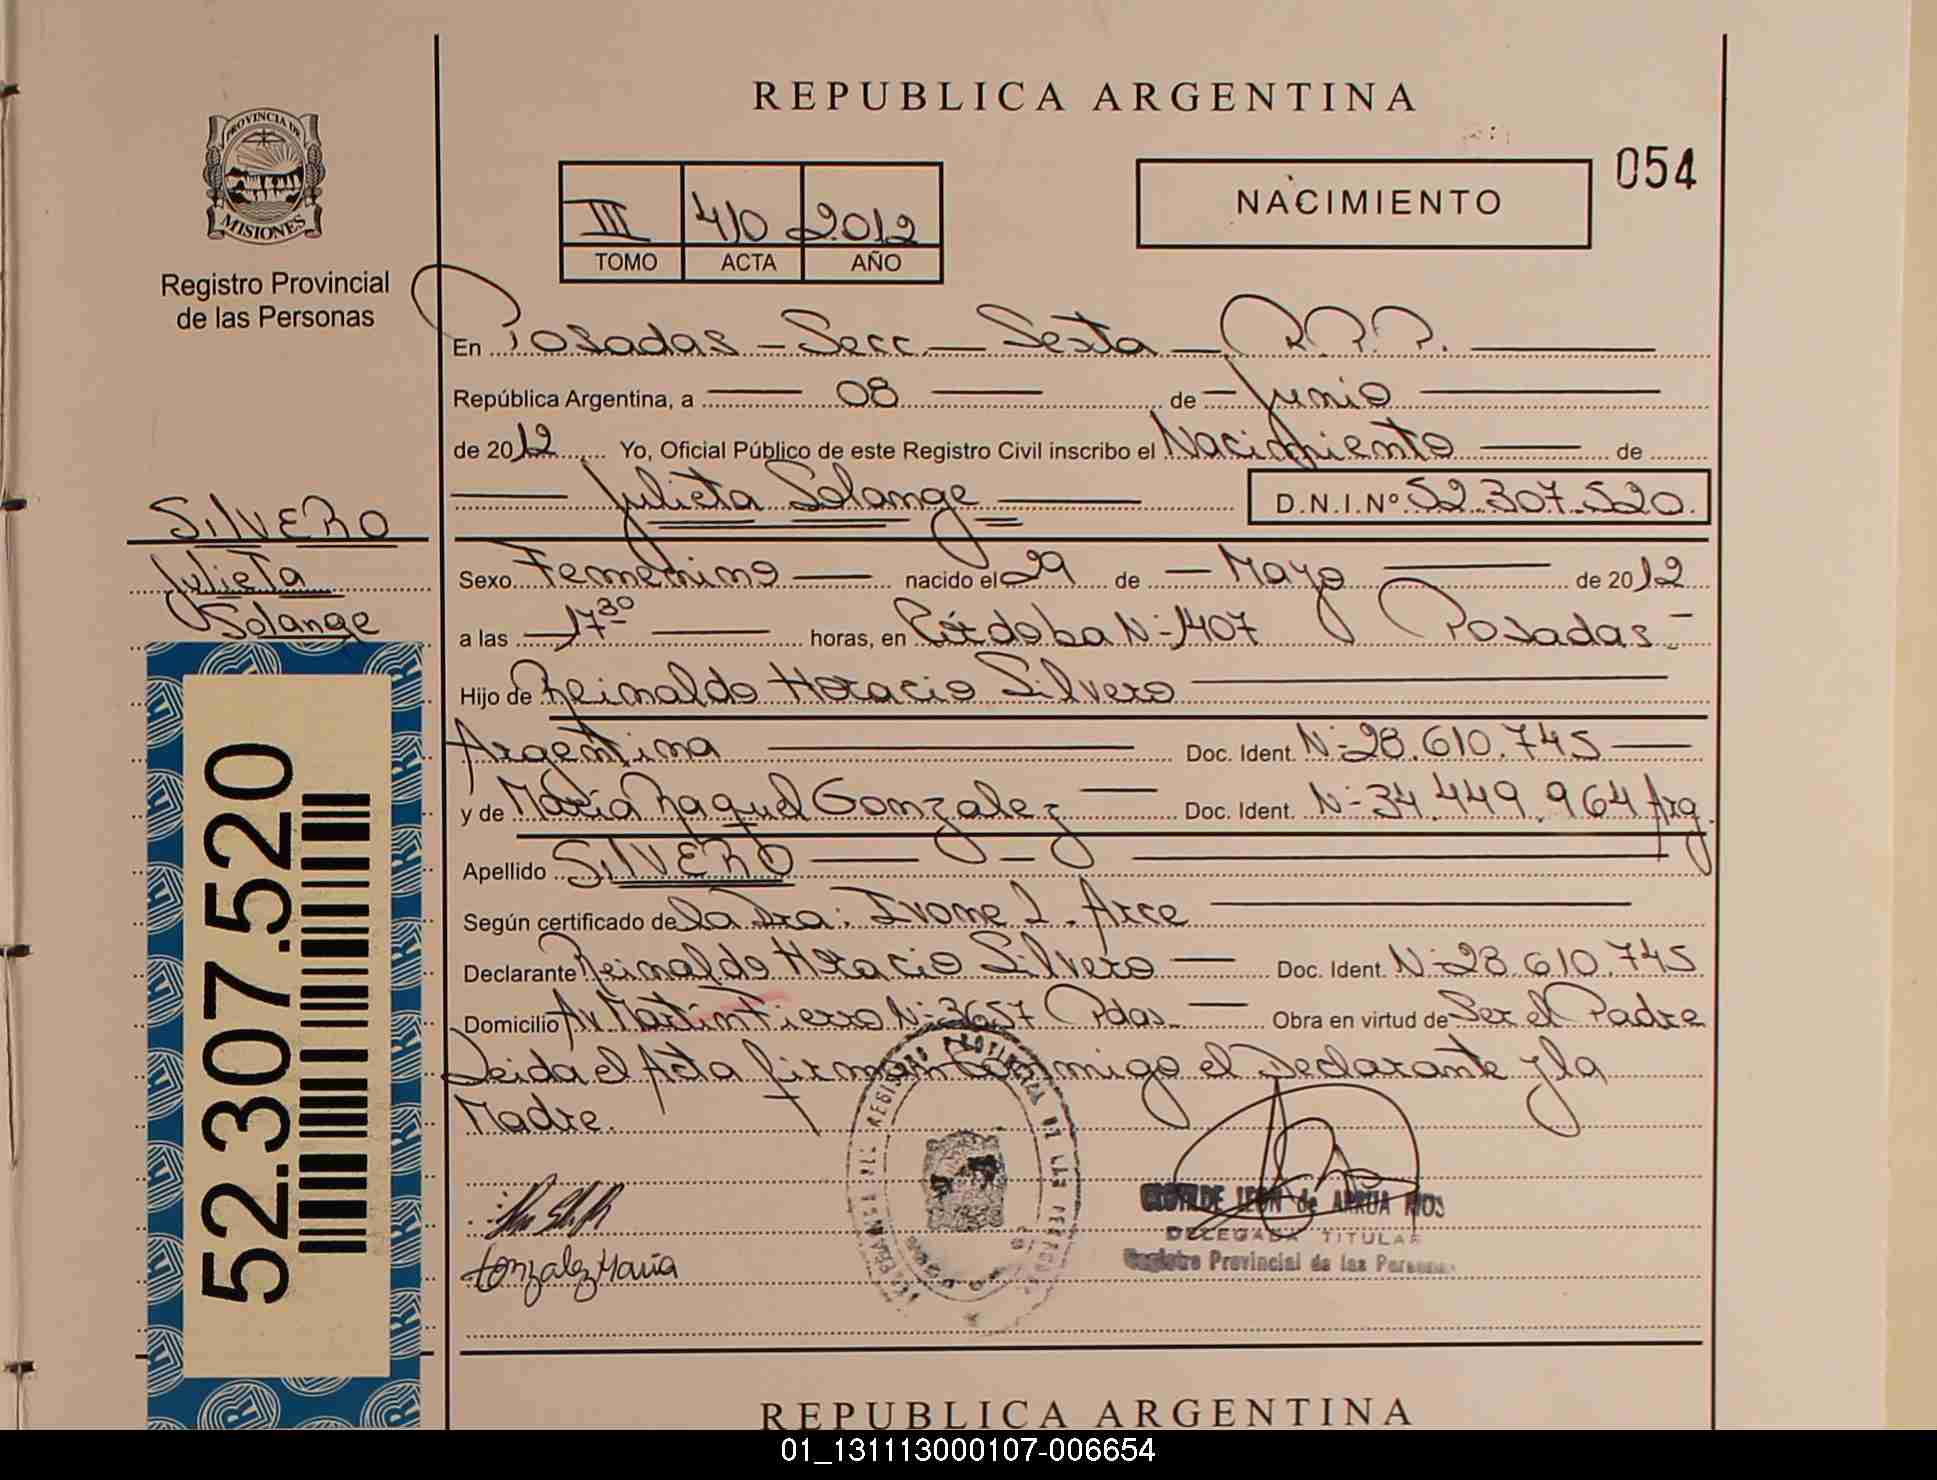 REPUBLICA ARGENTINA
054
NACIMIENTO
PROVINCIA DE
MISIONES
Registro Provincial
de las Personas
III 410 2012
TOMO ACTA AÑO
En Posadas - Secc. - Sexta - R.P.P.
República Argentina, a 08 de Junio
de 2012 Yo, Oficial Público de este Registro Civil inscribo el Nacimiento de
Julieta Solange D.N.I.Nº 52.307.520.
SILVERO
Julieta
Solange
Sexo Femenino nacido el 29 de Mayo de 2012
a las 17 30 horas, en Córdoba N: 1407 Posadas
Hijo de Reinaldo Horacio Silvero
Argentina Doc. Ident. N: 28.610.745
y de María Raquel Gonzalez Doc. Ident. N: 34.449.964 Arg.
Apellido SILVERO
Según certificado de la Dra: Ivone L. Arce
Declarante Reinaldo Horacio Silvero Doc. Ident. N: 28.610.745
Domicilio Av Martin Fierro N: 3657 Pdas. Obra en virtud de Ser el Padre
Leida el Acta firman Conmigo el Declarante y la
Madre.
52.307.520
Gonzalez María
CLOTILDE LEON de ARRUA RIOS
DELEGADA TITULAR
Registro Provincial de las Personas
REGISTRO PROVINCIAL DE LAS PERSONAS
REPUBLICA ARGENTINA
01_131113000107-006654